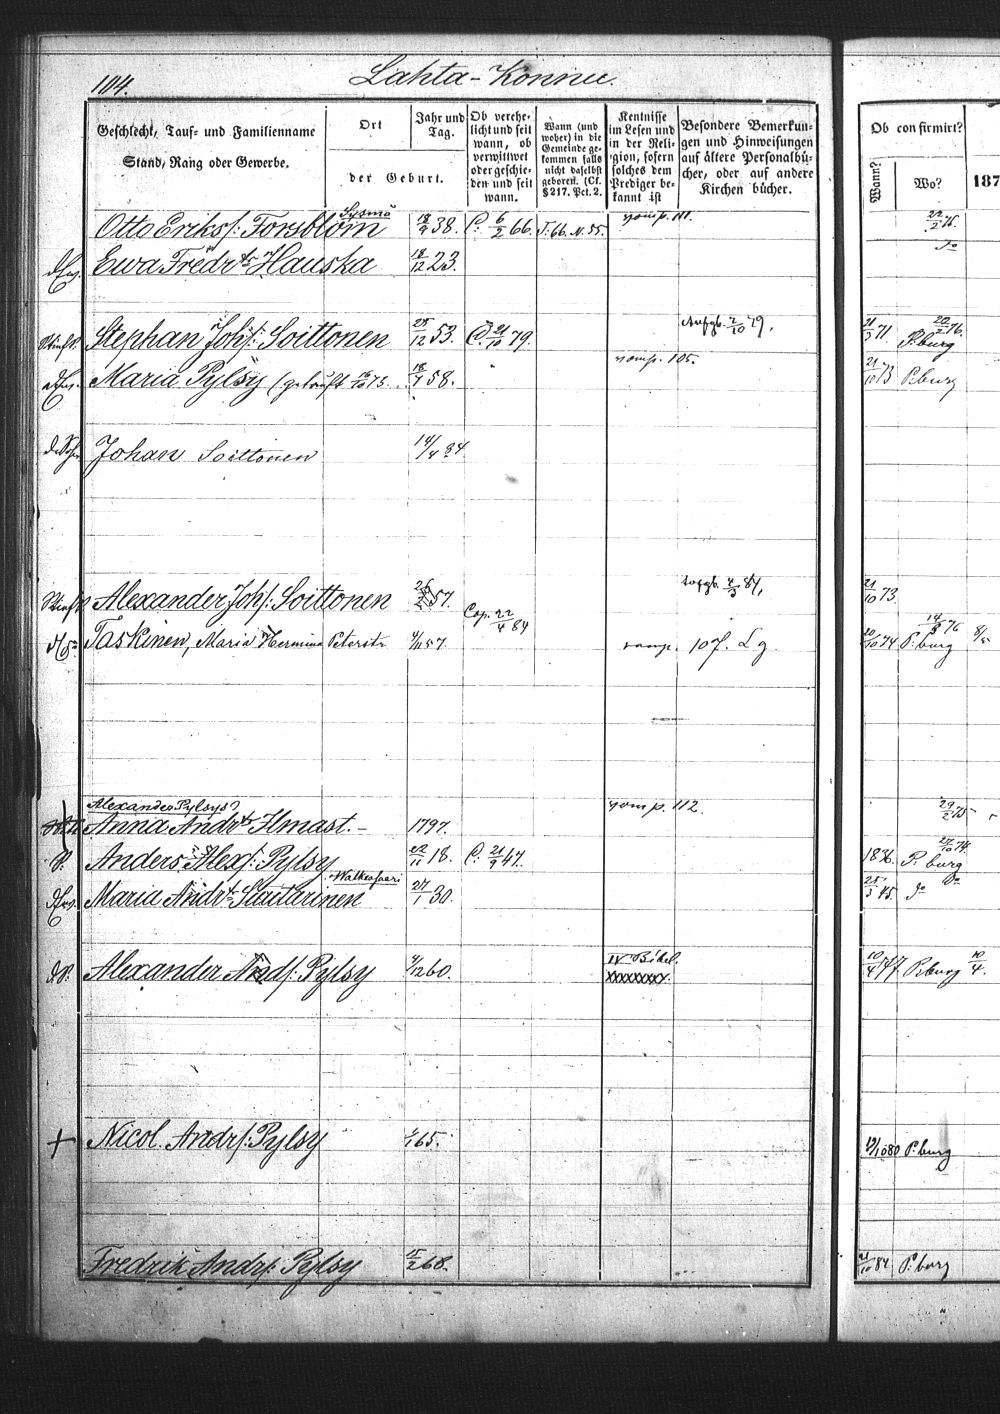 104.
Lahta-Konnu.
Geschlecht, Tauf- und Familienname
Stand, Rang oder Gewerbe.
Ort
der Geburt.
Jahr und Tag.
Ob verehelicht und seit wann, ob verwittwet oder geschieden und seit wann.
Wann (und woher) in die Gemeinde gekommen falls nicht daselbst geboren. (Cf. § 217. Pct. 2.
Kentnisse im Lesen und in der Religion, sofern solches dem Prediger bekannt ist
Besondere Bemerkungen und Hinweisungen auf ältere Personalbücher, oder auf andere Kirchenbücher.
Ob confirmirt?
Wann?
Wo?
187
Otto Eriks f: Forsblom Sysmä 18/9 38. C. 6/2 66. J. 66. N. 55. vom p. 111. 22/2 75.
Ewa Fredr. Hauska 18/12 23.
Stephan Joh f: Soittonen 25/12 53. C. 21/10 79. Aufgb. 2/10 79. 21/3 71. P. burg 22/2 76.
Maria Pylsy (getauft 16/10 73. 18/1 58. vom p. 105. 21/10 73 P. burg
Johan Soittonen 14/4 84
Alexander Joh f: Soittonen 57. 4/3 84, 21/10 73.
Cop. 22/4 84
Taskinen, Maria Hermina 4/11 57. vom p. 107. Lg. 20/10 74 P. burg 76
Alexander Pylsys
Anna Andr. Ilmast. 1797. vom p. 112. 29/2 75
Anders Alex f: Pylsy 22/11 18. C. 21/9 47. 1836. P. burg 27/10 74.
Maria Andr. Sautarinen Walkeasaari 27/1 30. 25/3 45. do
Alexander And f: Pylsy 4/12 60. IV Bibel. xxxxxxxx. 10/4 77 P. burg 10/4.
Nicol. Andr f: Pylsy 65. 19/10 80 P. burg
Fredrik Andr f: Pylsy 15/2 68. 21/10 84 P. burg